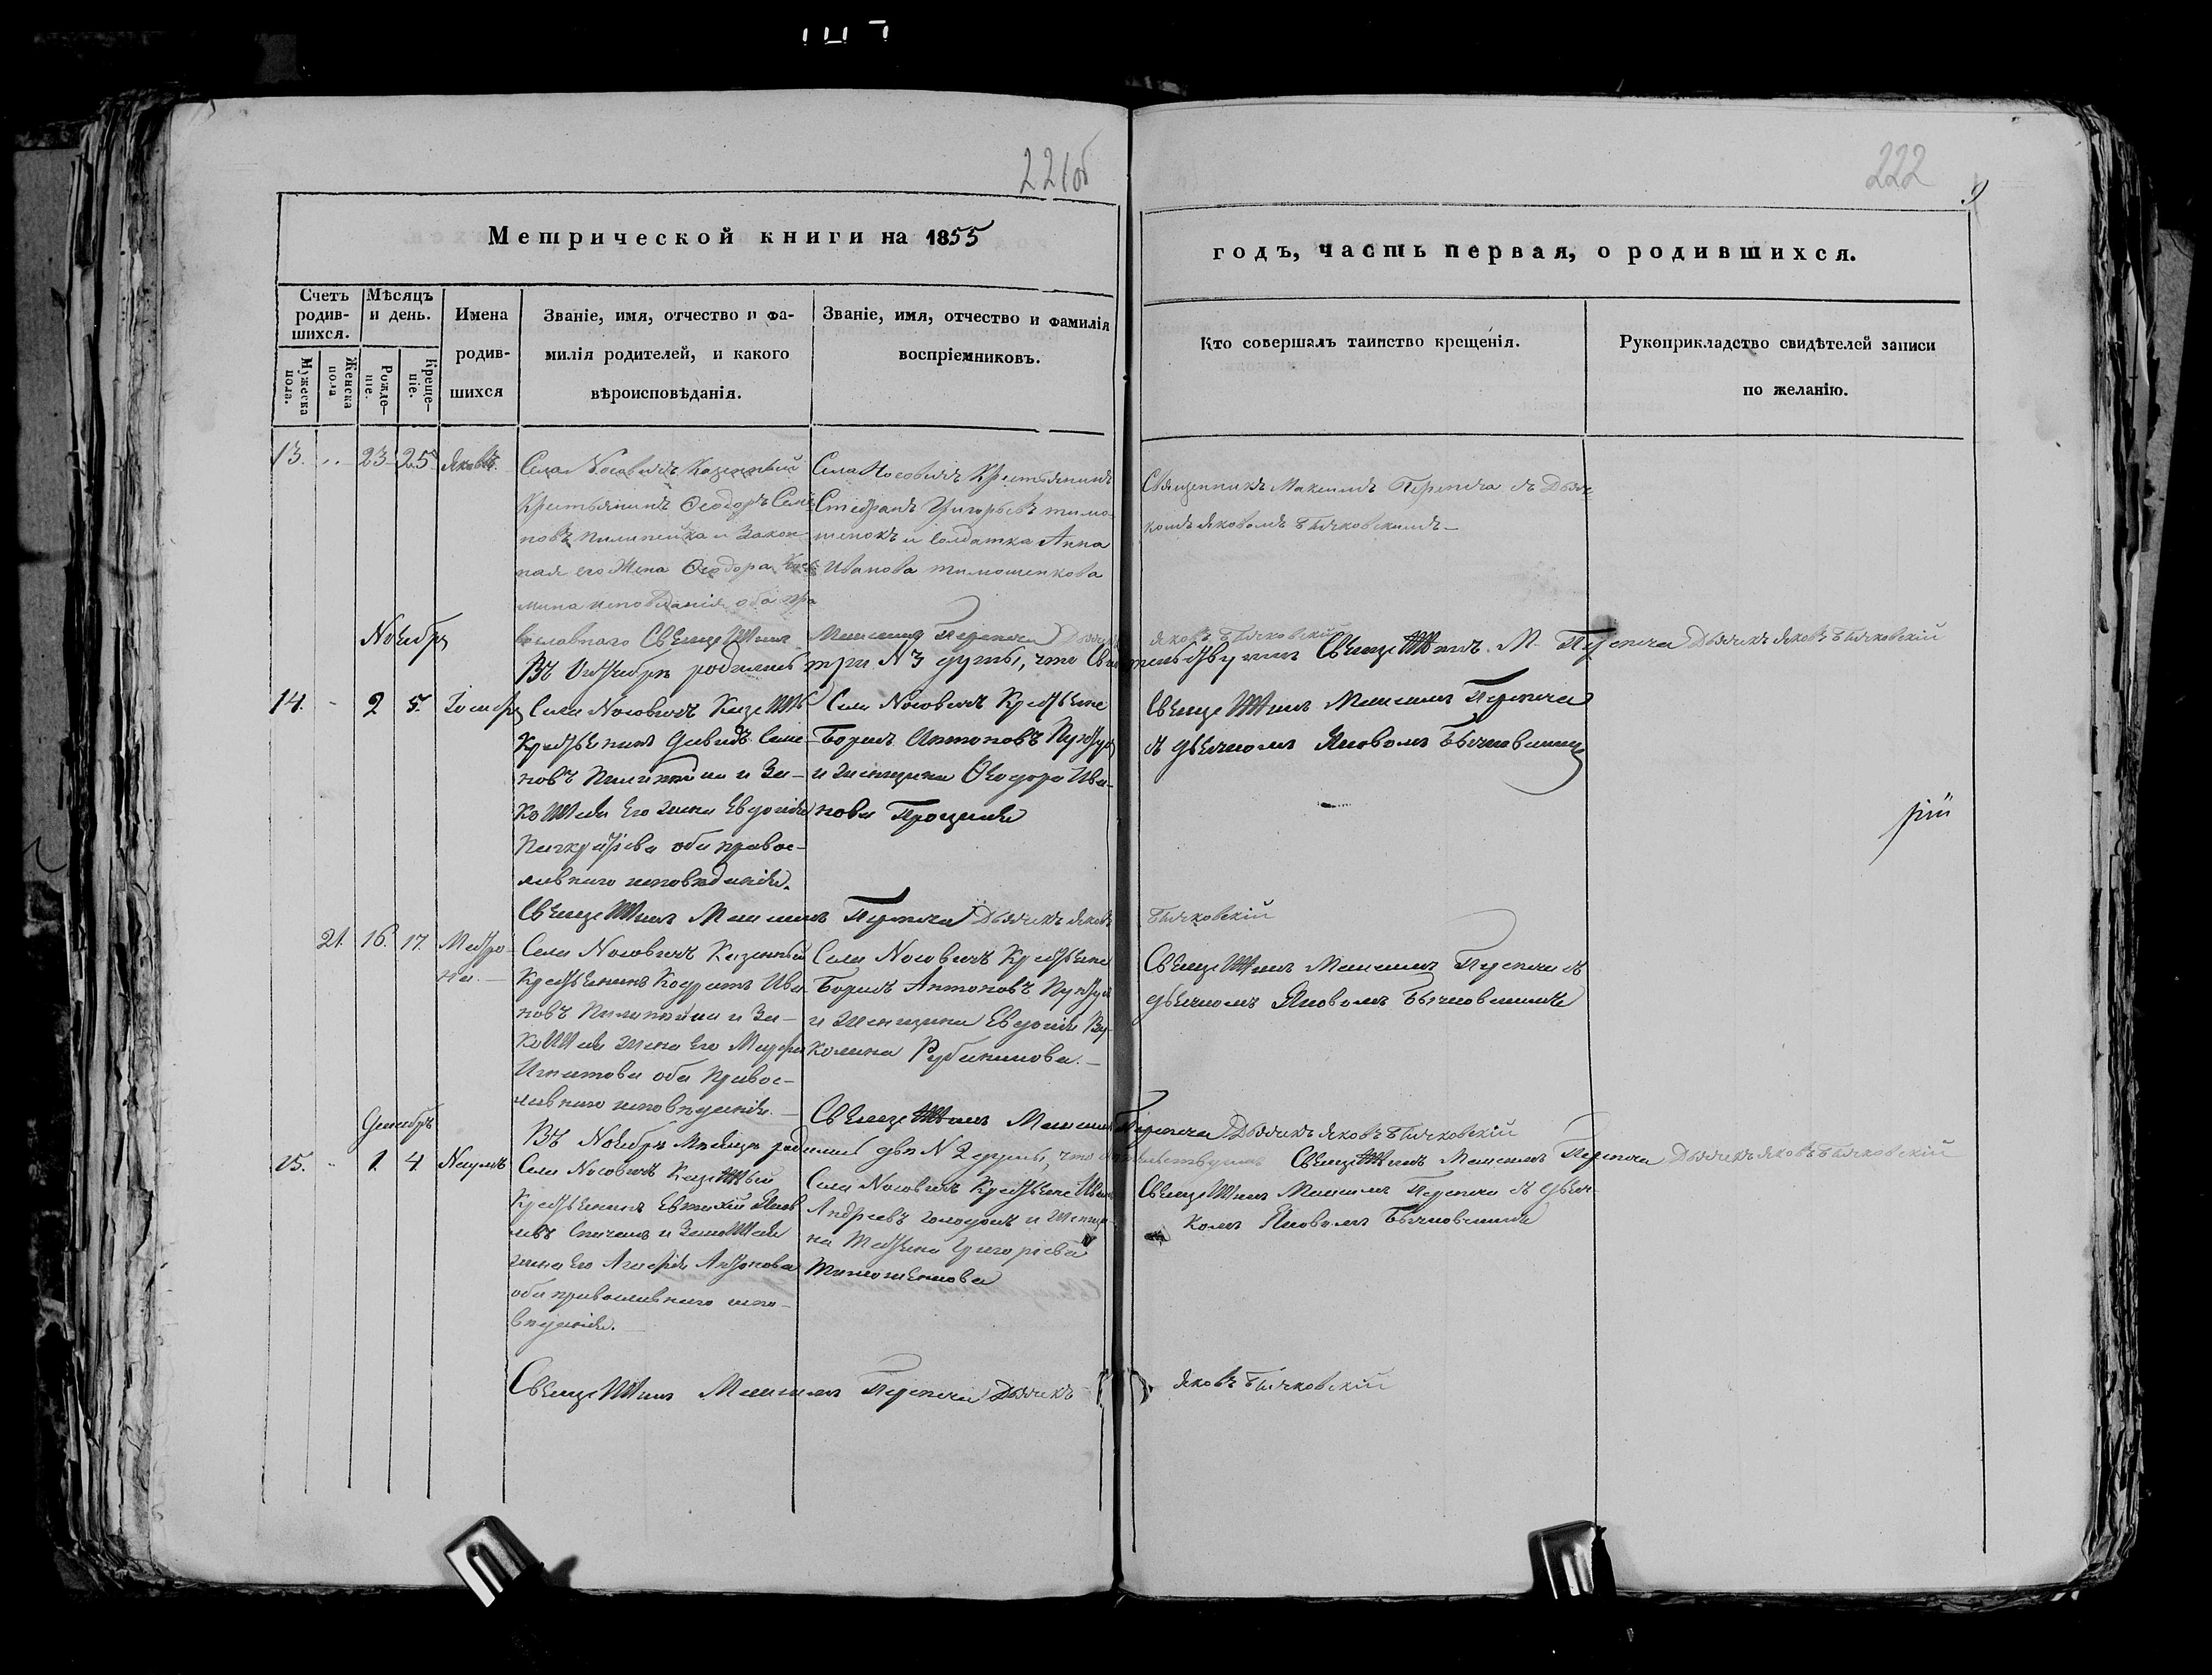 221об
222
9
Метрической книги на 1855
годъ, часть первая, о родившихся.
Счетъ родив-шихся.
Мужеска пола.
Женска пола
Мѣсяцъ и день.
Рожде-ніе.
Креще-ніе.
Имена
родив-
шихся
Званіе, имя, отчество и фа-
милія родителей, и какого
вѣроисповѣданія.
Званіе, имя, отчество и фамилія
воспріемниковъ.
Кто совершалъ таинство крещенія.
Рукоприкладство свидѣтелей записи
по желанію.
13. 23 25 Яковъ.
Села Носовичъ Казенный
Крестьянинъ Ѳеодоръ Семе
новъ Пилипейка и Закон-
ная его Жена Ѳеодора
мина исповѣданія оба пра
Села Носовичъ Крестьянинъ
Стефанъ Григорьевъ тимо-
шенокъ и Солдатка Анна
Иванова тимошенкова
Священникъ Максимъ Перепеча съ Дьяч
комъ Яковомъ Бычковскимъ
Ноябрь
вославнаго Священникъ Максимъ Перепеча Дьячекъ Яковъ Бычковскій
Въ Октябрѣ родились три № 3 души, что свидѣтельствуемъ Священникъ М. Перепеча Дьячекъ Яковъ Бычковскій
14. 2 5.
Села Носовичъ Казенный
Крестьянинъ Давидъ Семе
новъ Пилипейка и За-
конная его жена Евдокія
оба правос-
лавнаго исповѣданія.
Села Носовичъ Крестьяне
Борисъ Антоновъ
и женщина Ѳеодора Ива-
нова Процкая
Священникъ Максимъ Перепеча
съ дьячкомъ Яковомъ Бычковскимъ
Священникъ Максимъ Перепеча Дьячекъ Яковъ Бычковскій
21. 16. 17. Матро-
на.
Села Носовичъ Казенный
Крестьянинъ Кодратъ Ива-
новъ Пилипейка и За-
конная жена его Марфа
Игнатова оба Правос-
лавнаго исповѣданія.
Села Носовичъ Крестьяне
Борисъ Антоновъ
и Женщина Евдокія Ву-
колина Рубанинова.
Священникъ Максимъ Перепеча съ
дьячкомъ Яковомъ Бычковскимъ
Священникъ Максимъ Перепеча Дьячекъ Яковъ Бычковскій
Декабрь
Въ Ноябрѣ Мѣсяцѣ родились двѣ № 2 души, что свидѣтельствуемъ Священникъ Максимъ Перепеча Дьячекъ Яковъ Бычковскій
15. 1. 4. Наумъ
Села Носовичъ Казенный
Крестьянинъ Евтихій Яков
левъ и Законная
жена его Агафія Антонова
оба православнаго испо-
вѣданія.
Села Носовичъ Крестьяне Иванъ
Андреевъ и Женщи-
на Татьяна Григорьева
Тимошенкова
Священникъ Максимъ Перепеча съ дьяч-
комъ Яковомъ Бычковскимъ
Священникъ Максимъ Перепеча Дьячекъ Яковъ Бычковскій